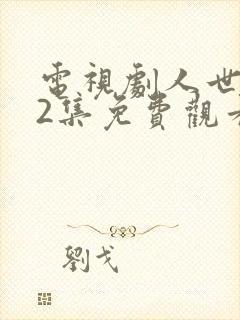 電視劇人世
2集免費觀
劉戈